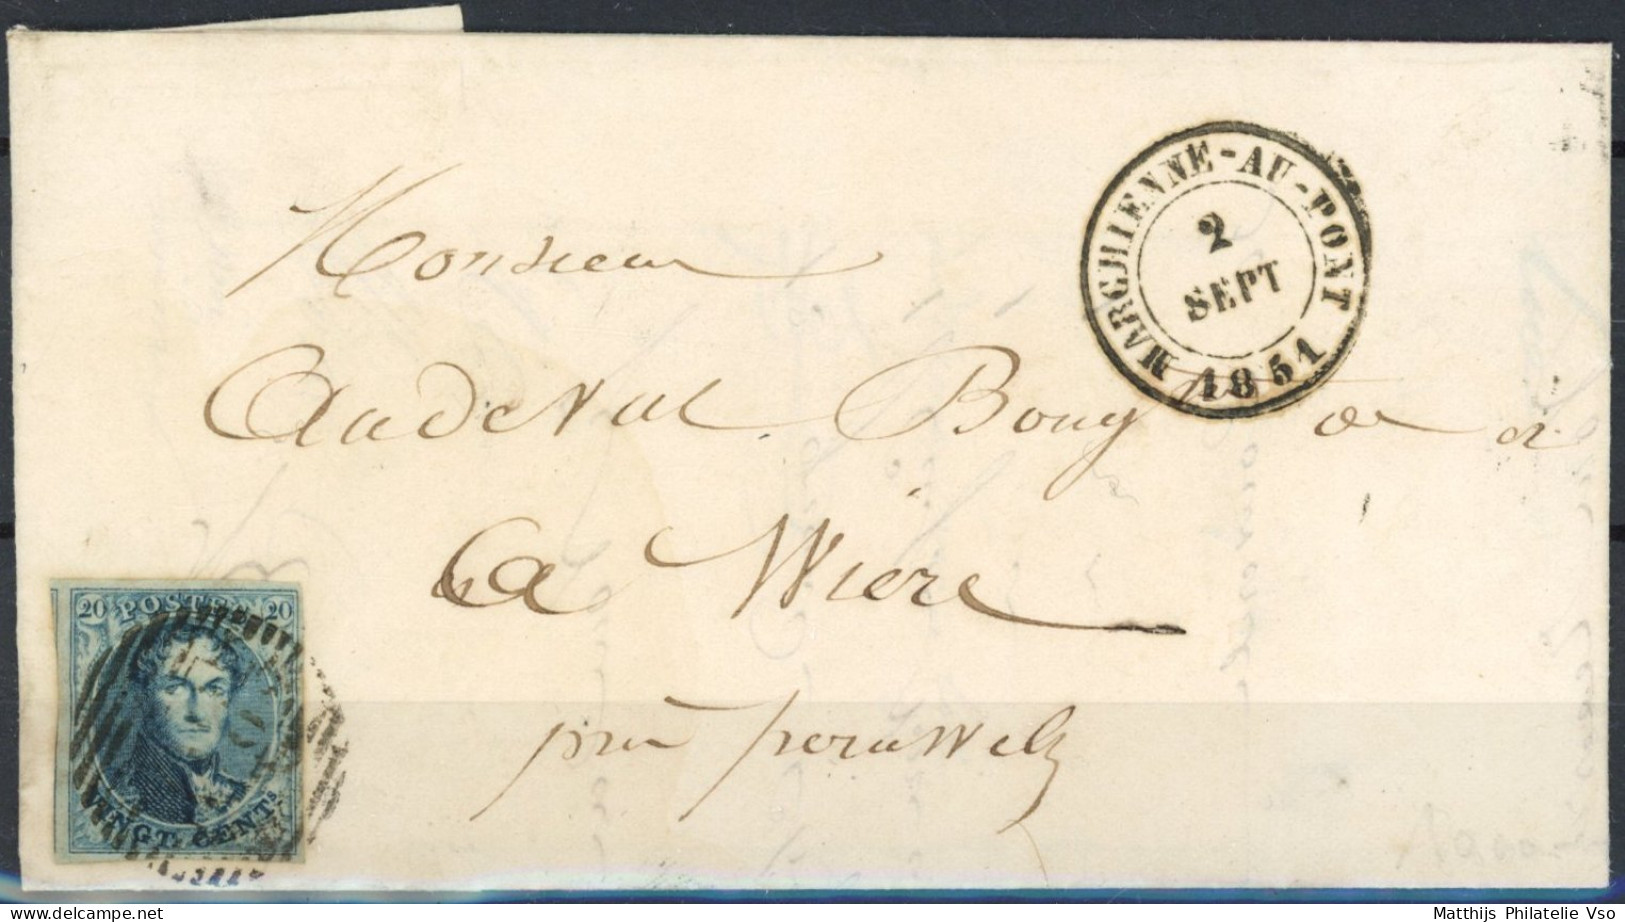 MARCHIENNE-AU-PONT
2
SEPT
1851
Monsieur
Audeval Bouy
a Wiere
près peruwelz
20 POSTES 20
VINGT CENTS
Matthijs Philatelie Vso